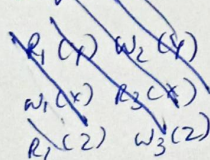 R₁(y) W₂(y)
W₁(x) R₃(x)
R₁(z) W₃(z)